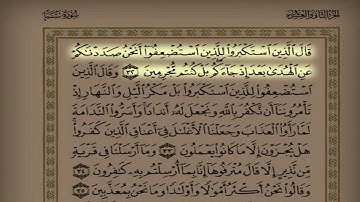 الجزء الثاني والعشرون
سورة سبأ
قَالَ ٱلَّذِينَ ٱسْتَكْبَرُوا۟ لِلَّذِينَ ٱسْتُضْعِفُوٓا۟ أَنَحْنُ صَدَدْنَٰكُمْ
عَنِ ٱلْهُدَىٰ بَعْدَ إِذْ جَآءَكُم ۖ بَلْ كُنتُم مُّجْرِمِينَ ٣٢ وَقَالَ ٱلَّذِينَ
ٱسْتُضْعِفُوا۟ لِلَّذِينَ ٱسْتَكْبَرُوا۟ بَلْ مَكْرُ ٱلَّيْلِ وَٱلنَّهَارِ إِذْ
تَأْمُرُونَنَآ أَن نَّكْفُرَ بِٱللَّهِ وَنَجْعَلَ لَهُۥٓ أَندَادًا ۚ وَأَسَرُّوا۟ ٱلنَّدَامَةَ
لَمَّا رَأَوُا۟ ٱلْعَذَابَ وَجَعَلْنَا ٱلْأَغْلَٰلَ فِىٓ أَعْنَاقِ ٱلَّذِينَ كَفَرُوا۟ ۚ
هَلْ يُجْزَوْنَ إِلَّا مَا كَانُوا۟ يَعْمَلُونَ ٣٣ وَمَآ أَرْسَلْنَا فِى قَرْيَةٍ
مِّن نَّذِيرٍ إِلَّا قَالَ مُتْرَفُوهَآ إِنَّا بِمَآ أُرْسِلْتُم بِهِۦ كَٰفِرُونَ ٣٤
وَقَالُوا۟ نَحْنُ أَكْثَرُ أَمْوَٰلًا وَأَوْلَٰدًا وَمَا نَحْنُ بِمُعَذَّبِينَ ٣٥